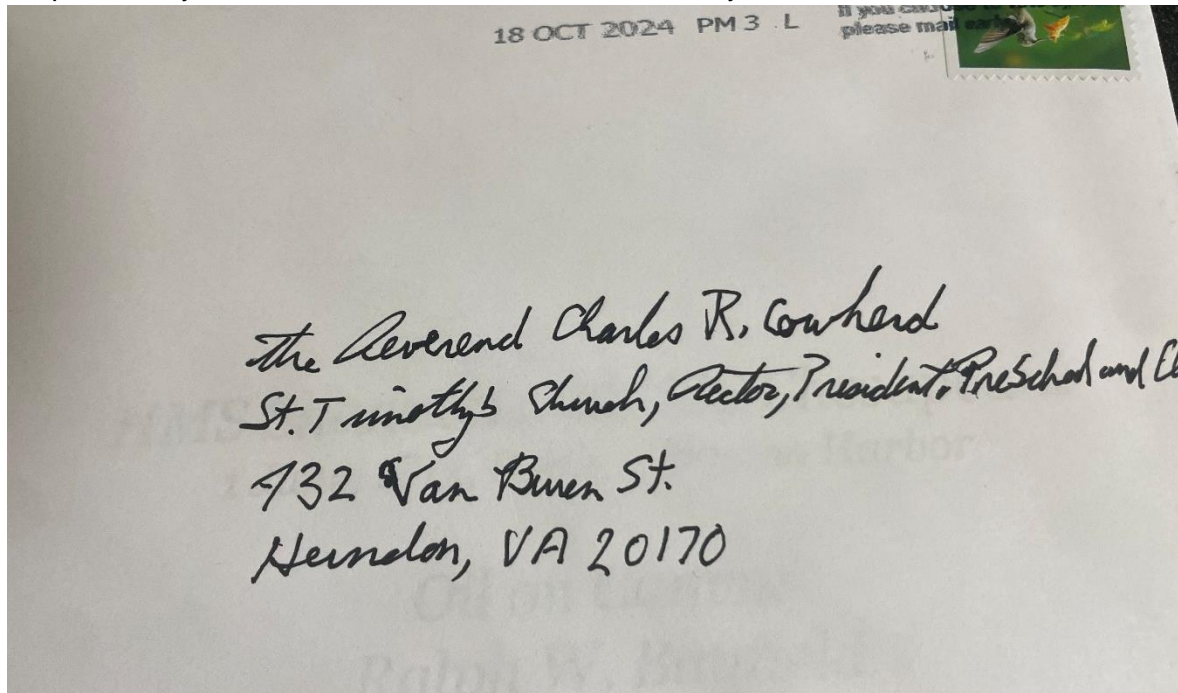 18 OCT 2024 PM 3 L
please mail
the Reverend Charles R. Cowherd
St. Timothy's Church, Rector, President, PreSchool and
432 Van Buren St.
Herndon, VA 20170
Harbor
Oil on